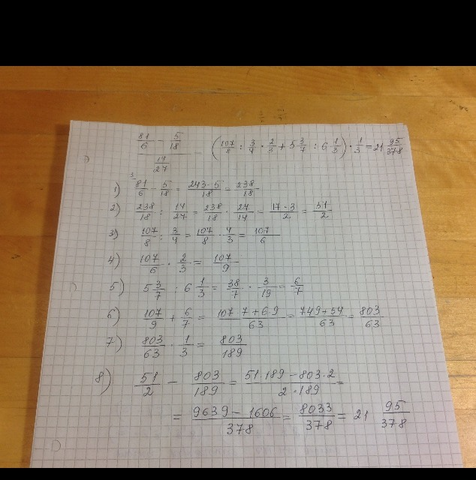 (81/6 - 5/18) / (14/27) - (107/8 : 3/4 · 2/3 + 5 3/7 : 6 1/3) · 1/3 = 21 95/378
1) 81/6 - 5/18 = (243-5)/18 = 238/18
2) 238/18 : 14/27 = 238/18 · 27/14 = (17·3)/2 = 51/2
3) 107/8 : 3/4 = 107/8 · 4/3 = 107/6
4) 107/6 · 2/3 = 107/9
5) 5 3/7 : 6 1/3 = 38/7 · 3/19 = 6/7
6) 107/9 + 6/7 = (107·7+6·9)/63 = (749+54)/63 = 803/63
7) 803/63 · 1/3 = 803/189
8) 51/2 - 803/189 = (51·189-803·2)/(2·189) =
= (9639-1606)/378 = 8033/378 = 21 95/378